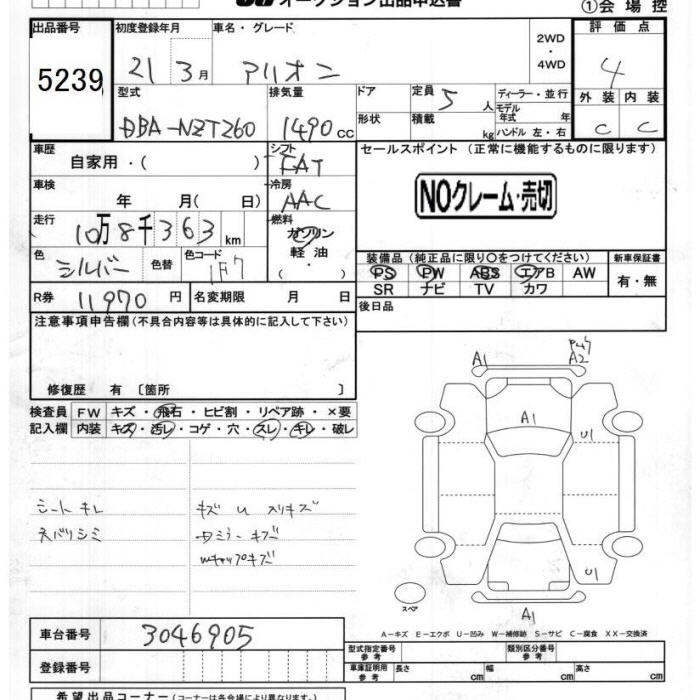 オークション出品申込書
①会場控
出品番号 初度登録年月 車名・グレード 2WD・4WD 評価点
5239 21 3月 アリオン 4
型式 排気量 ドア 定員 5人 ディーラー・並行 外装 内装
DBA-NZT260 1490cc 形状 積載 kg モデル年式 年 ハンドル 左・右 C C
車歴 シフト セールスポイント (正常に機能するものに限ります)
自家用・( ) FAT
車検 年 月( 日) 冷房 AAC NOクレーム・売切
走行 10万8千363km 燃料 ガソリン 軽油・( )
色 シルバー 色替 色コード 1F7
装備品 (純正品に限り○をつけてください) 新車保証書
PS PW ABS エアB AW 有・無
SR ナビ TV カワ
R券 11970円 名変期限 月 日 後日品
注意事項申告欄(不具合内容等は具体的に記入して下さい)
修復歴 有 〔箇所 〕
検査員 FW キズ・飛石・ヒビ割・リペア跡・×要
記入欄 内装 キズ・汚レ・コゲ・穴・スレ・キレ・破レ
A1 A2
A1
U1
シートキレ キズ U スリキズ
ネバリシミ
ミラーキズ
WキャップキズU1
スペア A1
A-キズ E-エクボ U-凹み W-補修跡 S-サビ C-腐食 XX-交換済
車台番号 3046905
型式指定番号 参考 類別区分番号 参考
登録番号 車庫証明用 参考 長さ cm 幅 cm 高さ cm
希望出品コーナー (コーナーは各会場により異なります。)